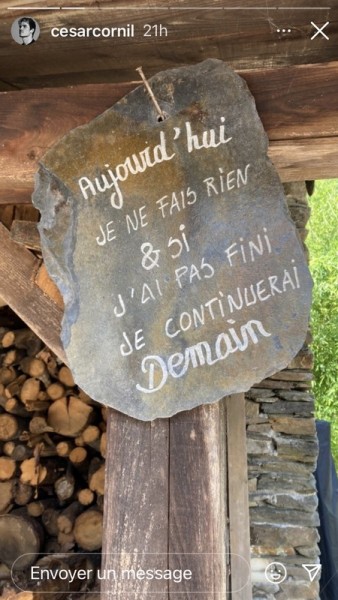 cesarcornil 21h
Aujourd'hui
JE NE FAIS RIEN
& SI
J'AI PAS FINI
JE CONTINUERAI
Demain
Envoyer un message